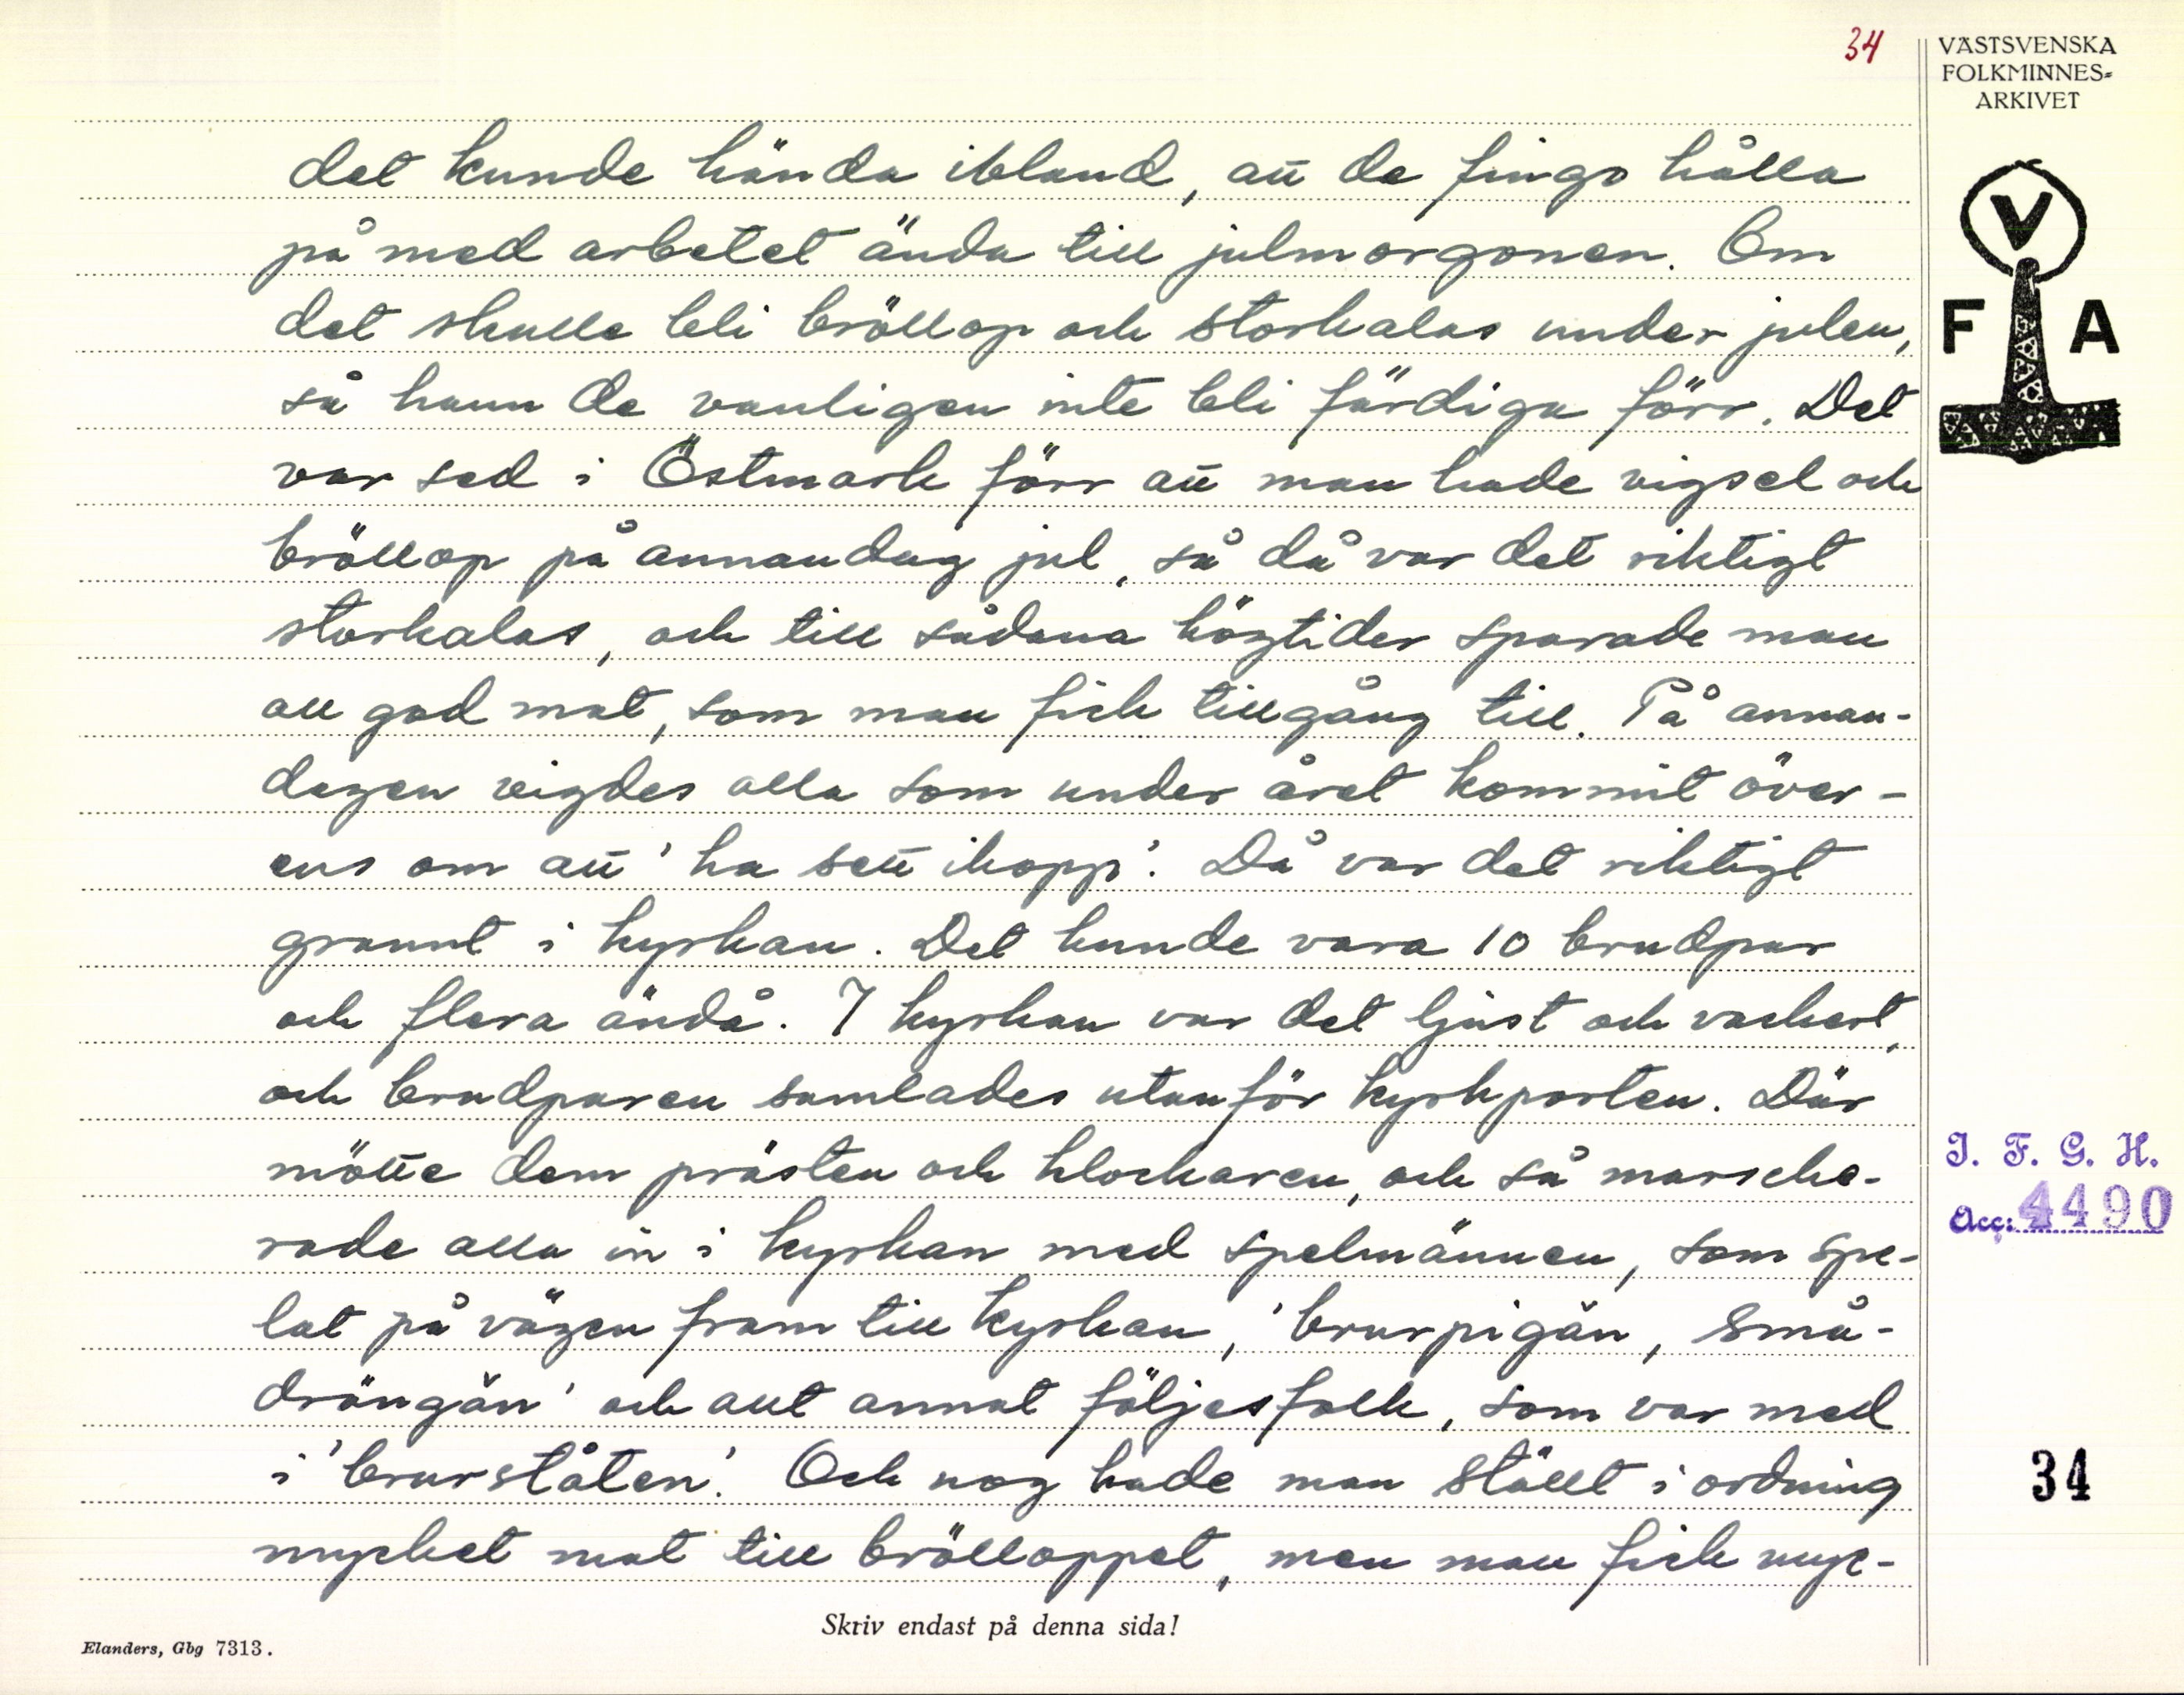 34
VÄSTSVENSKA
FOLKMINNES=
ARKIVET
V
F A
det kunde hända ibland, att de fingo hålla
på med arbetet ända till julmorgonen. Om
det skulle bli bröllop och storkalas under julen,
så hann de vanligen inte bli färdiga förr. Det
var sed i Östmark förr att man hade vigsel och
bröllop på annandag jul, så då var det riktigt
storkalas, och till sådana högtider sparade man
all god mat, som man fick tillgång till. På annan-
dagen vigdes alla som under året kommit över-
ens om att 'ha sett ihopp'. Då var det riktigt
grannt i kyrkan. Det kunde vara 10 brudpar
och flera ändå. I kyrkan var det ljust och vackert,
och brudparen samlades utanför kyrkporten. Där
mötte dem prästen och klockaren, och så marsche-
rade alla in i kyrkan med spelmännen, som spe-
lat på vägen fram till kyrkan, 'brurpigăn, små-
drängăn' och allt annat följesfolk, som var med
i 'brurståten'. Och nog hade man ställt i ordning
mycket mat till brölloppet, men man fick myc-
I. F. G. H.
Acc: 4490
34
Skriv endast på denna sida!
Elanders, Gbg 7313.